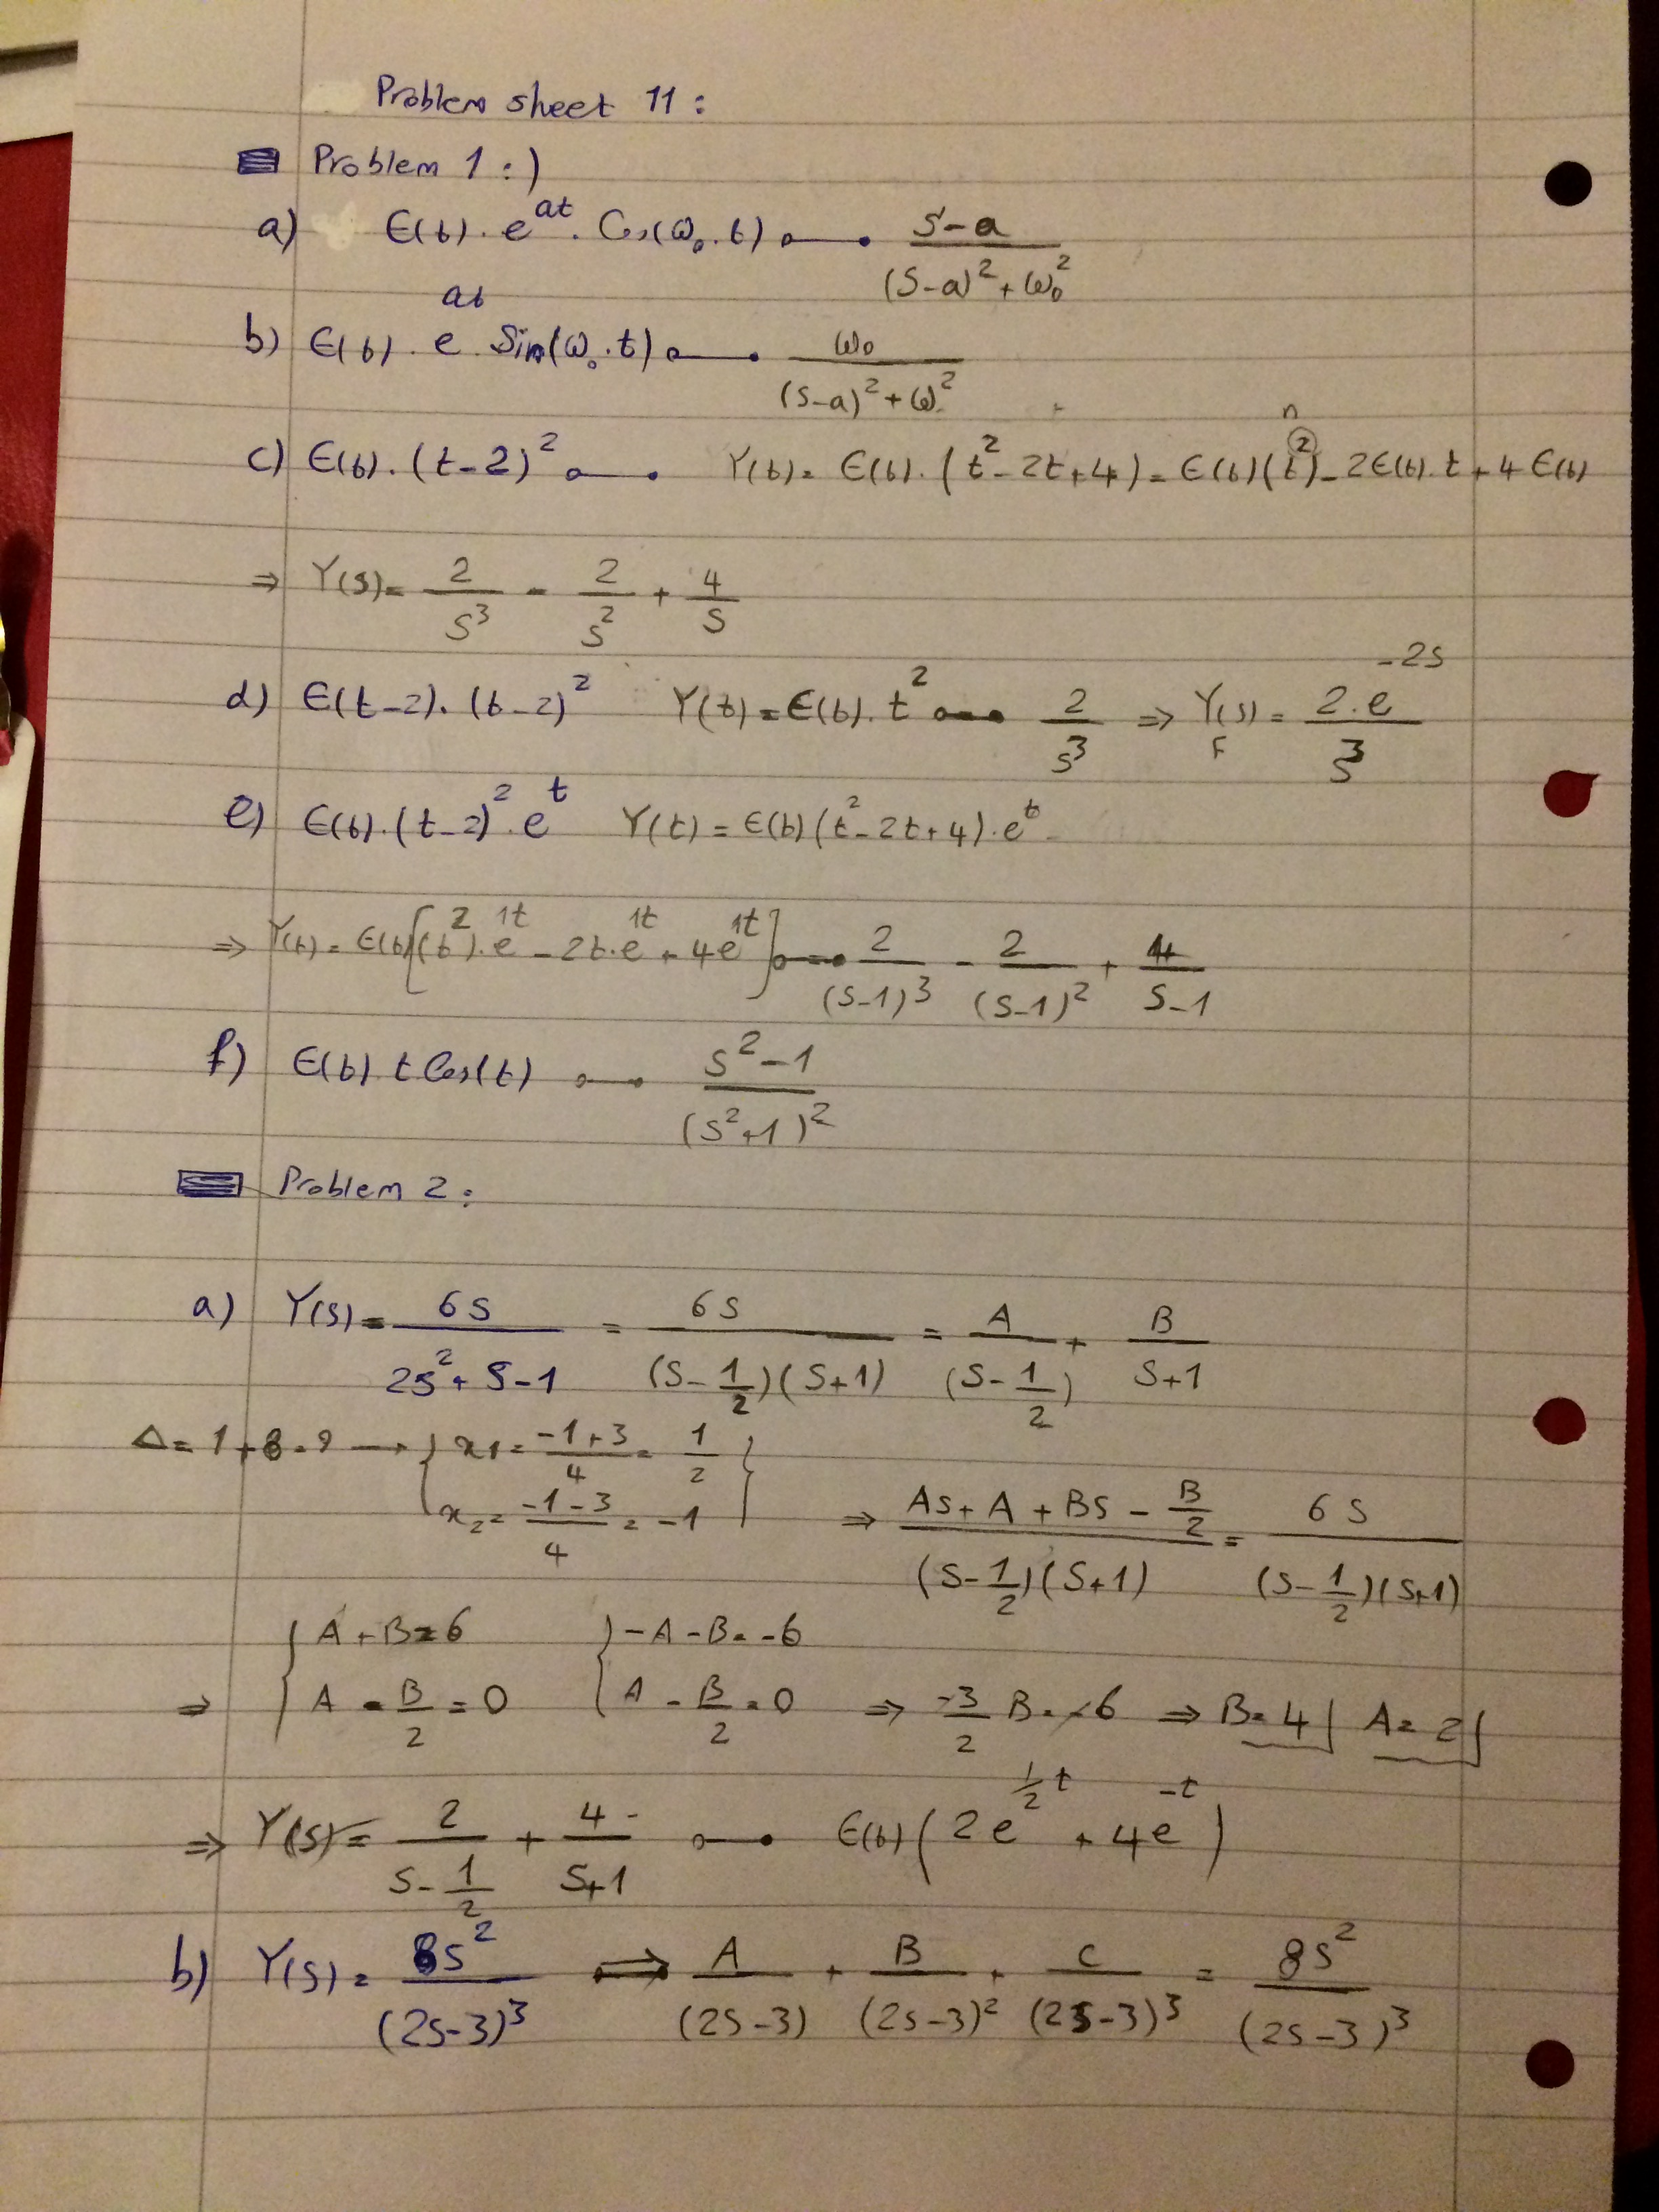 Problem sheet 11 :
Problem 1 : )
a) ϵ(t) . e^{at} . Cos(ω₀ . t) o—• (s-a)/((s-a)² + ω₀²)
b) ϵ(t) . e^{at} . Sin(ω₀ . t) o—• ω₀/((s-a)² + ω₀²)
c) ϵ(t) . (t-2)² o—• Y(t) = ϵ(t) . (t² - 2t + 4) = ϵ(t) (t^②) - 2ϵ(t) . t + 4 ϵ(t) n
⇒ Y(s) = 2/s³ - 2/s² + 4/s
d) ϵ(t-2) . (t-2)² Y(t) = ϵ(t) . t² o—• 2/s³ ⇒ Y_F(s) = 2 . e^{-2s}/s³
e) ϵ(t) . (t-2)² . e^t Y(t) = ϵ(t) (t² - 2t + 4) . e^t
⇒ Y(t) = ϵ(t) [(t²) . e^{1t} - 2t . e^{1t} + 4e^{1t}] o—• 2/(s-1)³ - 2/(s-1)² + 4/(s-1)
f) ϵ(t) t Cos(t) o—• (s² - 1)/(s² + 1)²
Problem 2 :
a) Y(s) = 6s/(2s² + s - 1) = 6s/((s - 1/2)(s+1)) = A/(s - 1/2) + B/(s+1)
Δ = 1 + 8 = 9 → { x1 = (-1+3)/4 = 1/2
x₂ = (-1-3)/4 = -1 } ⇒ (As + A + Bs - B/2)/((s - 1/2)(s+1)) = 6s/((s - 1/2)(s+1))
⇒ { A + B = 6 { -A - B = -6
A - B/2 = 0 A - B/2 = 0 ⇒ -3/2 B = -6 ⇒ B = 4 | A = 2 |
⇒ Y(s) = 2/(s - 1/2) + 4/(s+1) o—• ϵ(t) (2e^{1/2 t} + 4e^{-t})
b) Y(s) = 8s²/(2s-3)³ ⟺ A/(2s-3) + B/(2s-3)² + C/(2s-3)³ = 8s²/(2s-3)³